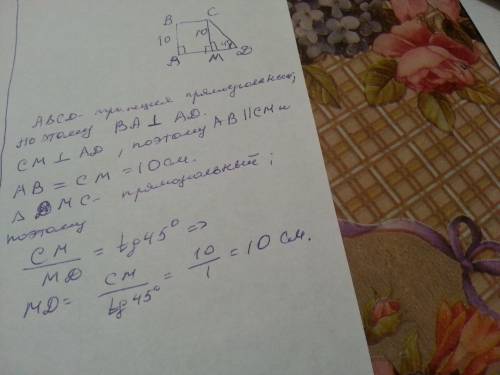 B C
10 10
A M 45° D
ABCD - трапеция прямоугольный,
поэтому BA ⊥ AD.
CM ⊥ AD, поэтому AB || CM и
AB = CM = 10 см.
Δ DMC - прямоугольный;
поэтому
CM / MD = tg 45° =>
MD = CM / tg 45° = 10 / 1 = 10 см.